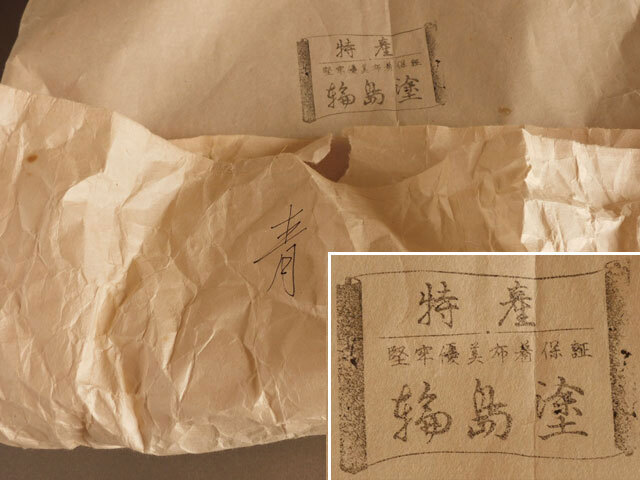 特産
堅牢優美布着保証
輪島塗
青
特産
堅牢優美布着保証
輪島塗